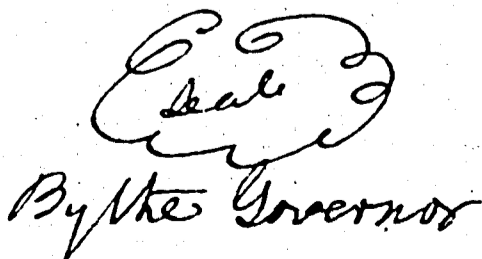 Seal
By the Governor